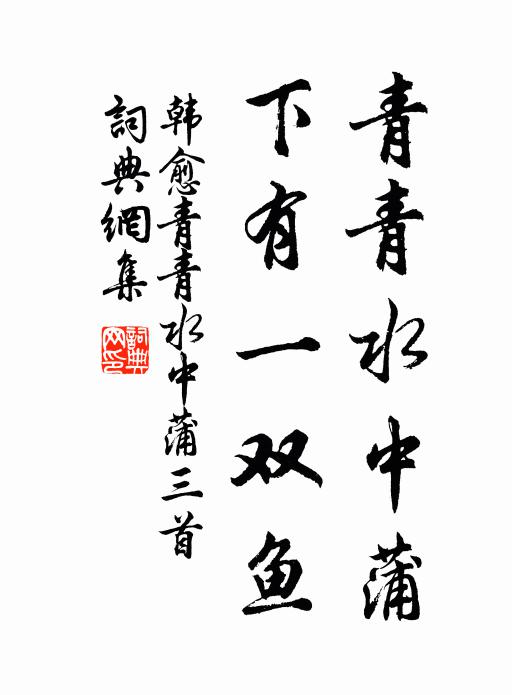 青青水中蒲
下有一双鱼
韩愈青青水中蒲三首
詞典網集
詞典网印